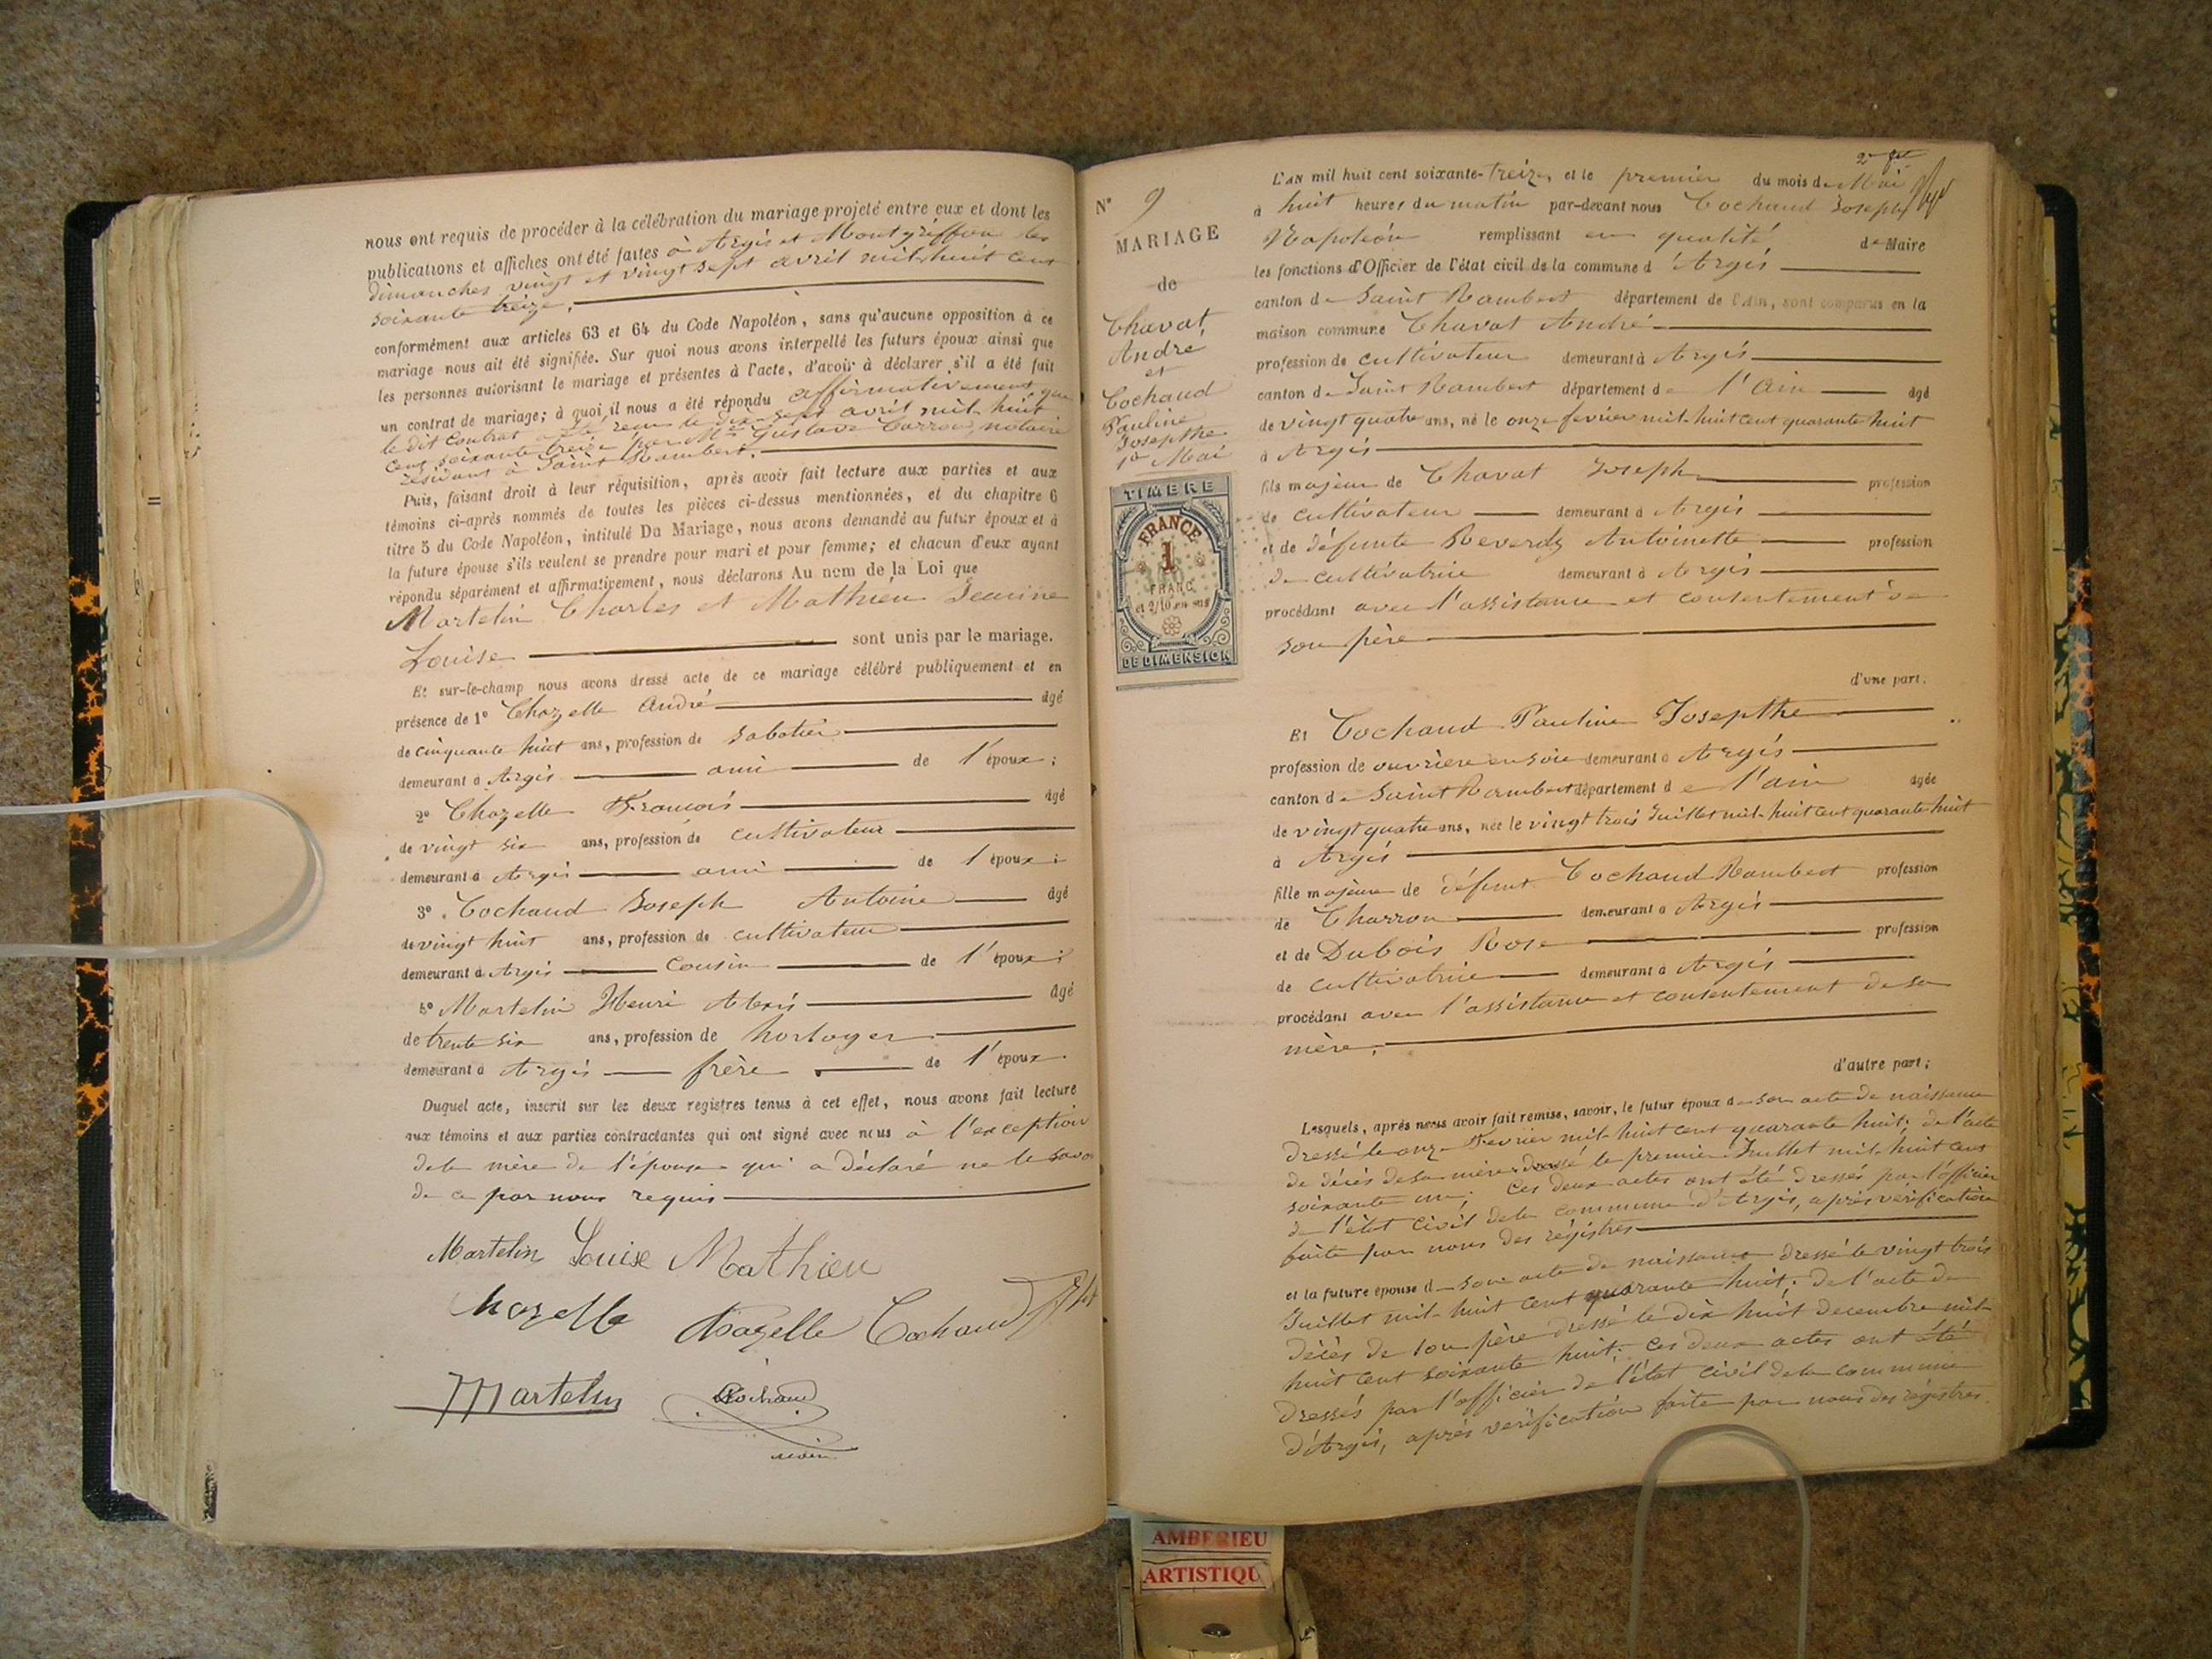 nous ont requis de procéder à la célébration du mariage projeté entre eux et dont les
publications et affiches ont été faites à Argis et Montgriffon les
dimanches vingt et vingt sept avril mil huit cent
soixante treize.
conformément aux articles 63 et 64 du Code Napoléon, sans qu'aucune opposition à ce
mariage nous ait été signifiée. Sur quoi nous avons interpellé les futurs époux ainsi que
les personnes autorisant le mariage et présentes à l'acte, d'avoir à déclarer s'il a été fait
un contrat de mariage; à quoi il nous a été répondu affirmativement que
le dit contrat a été reçu le dix sept avril mil huit
cent soixante treize par Me Gustave notaire
résidant à Saint Rambert.
Puis, faisant droit à leur réquisition, après avoir fait lecture aux parties et aux
témoins ci-après nommés de toutes les pièces ci-dessus mentionnées, et du chapitre 6
titre 5 du Code Napoléon, intitulé Du Mariage, nous avons demandé au futur époux et à
la future épouse s'ils veulent se prendre pour mari et pour femme; et chacun d'eux ayant
répondu séparément et affirmativement, nous déclarons Au nom de la Loi que
Martelin Charles et Mathieu Jeanine
Louise sont unis par le mariage.
Et sur-le-champ nous avons dressé acte de ce mariage célébré publiquement et en
présence de 1° Chazelle André âgé
de cinquante huit ans, profession de sabotier
demeurant à Argis ami de l'époux;
2° Chazelle François âgé
de vingt six ans, profession de cultivateur
demeurant à Argis ami de l'époux;
3° Cochaud Joseph Antoine âgé
de vingt huit ans, profession de cultivateur
demeurant à Argis cousin de l'époux;
4° Martelin Henri Alexis âgé
de trente six ans, profession de horloger
demeurant à Argis frère de l'époux.
Duquel acte, inscrit sur les deux registres tenus à cet effet, nous avons fait lecture
aux témoins et aux parties contractantes qui ont signé avec nous à l'exception
de la mère de l'épouse qui a déclaré ne le savoir
de ce par nous requis
Martelin Louise Mathieu
Chazelle Chazelle Cochaud
Martelin Cochaud
maire
N° 9
MARIAGE
de
Chavat
André
et
Cochaud
Pauline
Josepthe
1er Mai
TIMBRE
FRANCE
1
FRANC
et 2/10 en sus
DE DIMENSION
L'AN mil huit cent soixante-treize, et le premier du mois de Mai
à huit heures du matin par-devant nous Cochaud Joseph
Napoléon remplissant en qualité de Maire
les fonctions d'Officier de l'état civil de la commune d'Argis
canton de Saint Rambert département de l'Ain, sont comparus en la
maison commune Chavat André
profession de cultivateur demeurant à Argis
canton de Saint Rambert département de l'Ain âgé
de vingt quatre ans, né le onze fevrier mil huit cent quarante huit
à Argis
fils majeur de Chavat Joseph profession
de cultivateur demeurant à Argis
et de défunte Reverdy Antoinette profession
de cultivatrice demeurant à Argis
procédant avec l'assistance et consentement de
son père
d'une part.
Et Cochaud Pauline Josepthe
profession de ouvrière en soie demeurant à Argis
canton de Saint Rambert département de l'ain âgée
de vingt quatre ans, née le vingt trois Juillet mil huit cent quarante huit
à Argis
fille majeure de défunt Cochaud Rambert profession
de Charron demeurant à Argis
et de Dubois Rose profession
de cultivatrice demeurant à Argis
procédant avec l'assistance et consentement de sa
mère.
d'autre part;
Lesquels, après nous avoir fait remise, savoir, le futur époux de son acte de naissance
dressé le onze Fevrier mil huit cent quarante huit; de l'acte
de décès de sa mère dressé le premier Juillet mil huit cent
soixante un; Ces deux actes ont été dressés par l'officier
de l'état civil de la commune d'Argis, après vérification
faite par nous des régistres
et la future épouse de son acte de naissance dressé le vingt trois
Juillet mil huit cent quarante huit; de l'acte de
décès de son père dressé le dix huit decembre mil
huit cent soixante huit; ces deux actes ont été
dressés par l'officier de l'état civil de la commune
d'Argis, après vérification faite par nous des régistres
AMBERIEU
ARTISTIQU